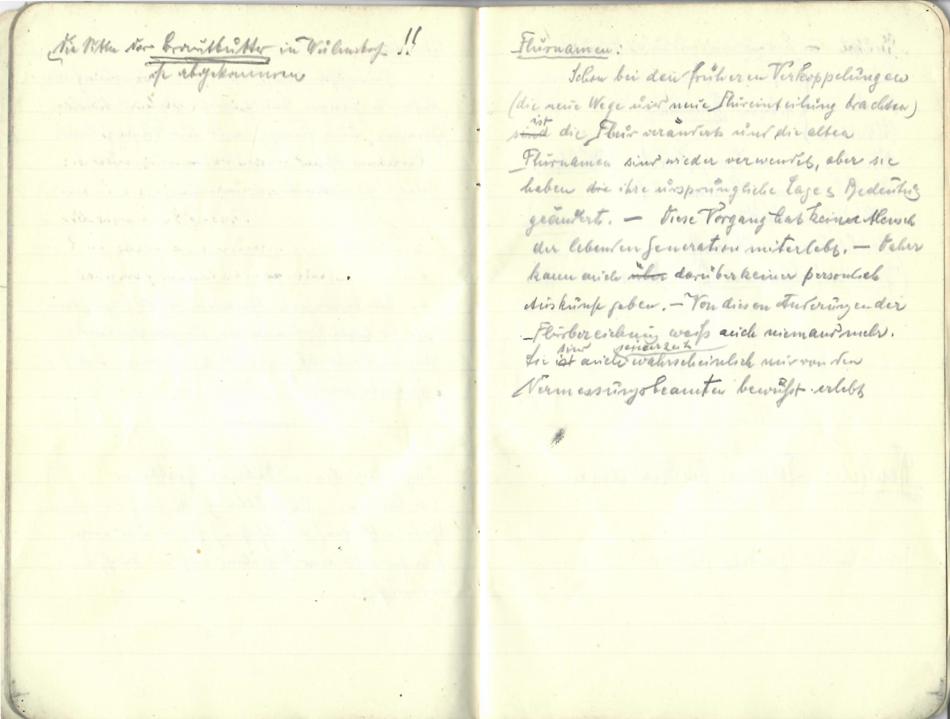 Die Sitte der Brautbutter in Wulmstorf !!
ist abgekommen
Flurnamen:
Schon bei den früheren Verkoppelungen
(die neue Wege und neue Flureinteilung brachten)
sind ist die Flur verändert und die alten
Flurnamen sind wieder verwendet, aber sie
haben die ihre ursprüngliche Lage & Bedeutung
geändert. — Diese Vorgang hat keiner Mensch
der lebenden Generation miterlebt. — Daher
kann auch über darüber keiner persönlich
Auskunft geben. — Von diesen Änderungen der
Flurbezeichnung weiß auch niemand mehr.
Sie ist sind auch seinerzeit wahrscheinlich nur von den
Vermessungsbeamten bewußt erlebt